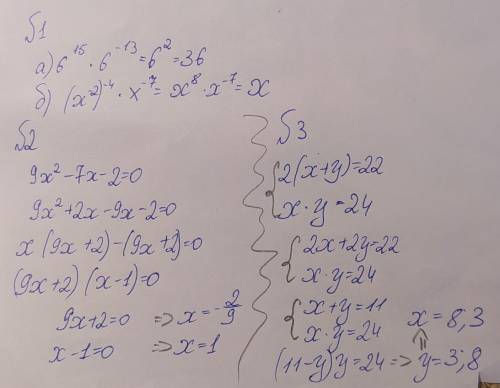 №1
а) 6^15 · 6^-13 = 6^2 = 36
б) (x^-2)^-4 · x^-7 = x^8 · x^-7 = x
№2
9x² - 7x - 2 = 0
9x² + 2x - 9x - 2 = 0
x (9x + 2) - (9x + 2) = 0
(9x + 2) (x - 1) = 0
9x + 2 = 0 => x = -2/9
x - 1 = 0 => x = 1
№3
{ 2(x + y) = 22
x · y = 24
{ 2x + 2y = 22
x · y = 24
{ x + y = 11
x · y = 24
x = 8; 3
(11 - y) y = 24 => y = 3; 8